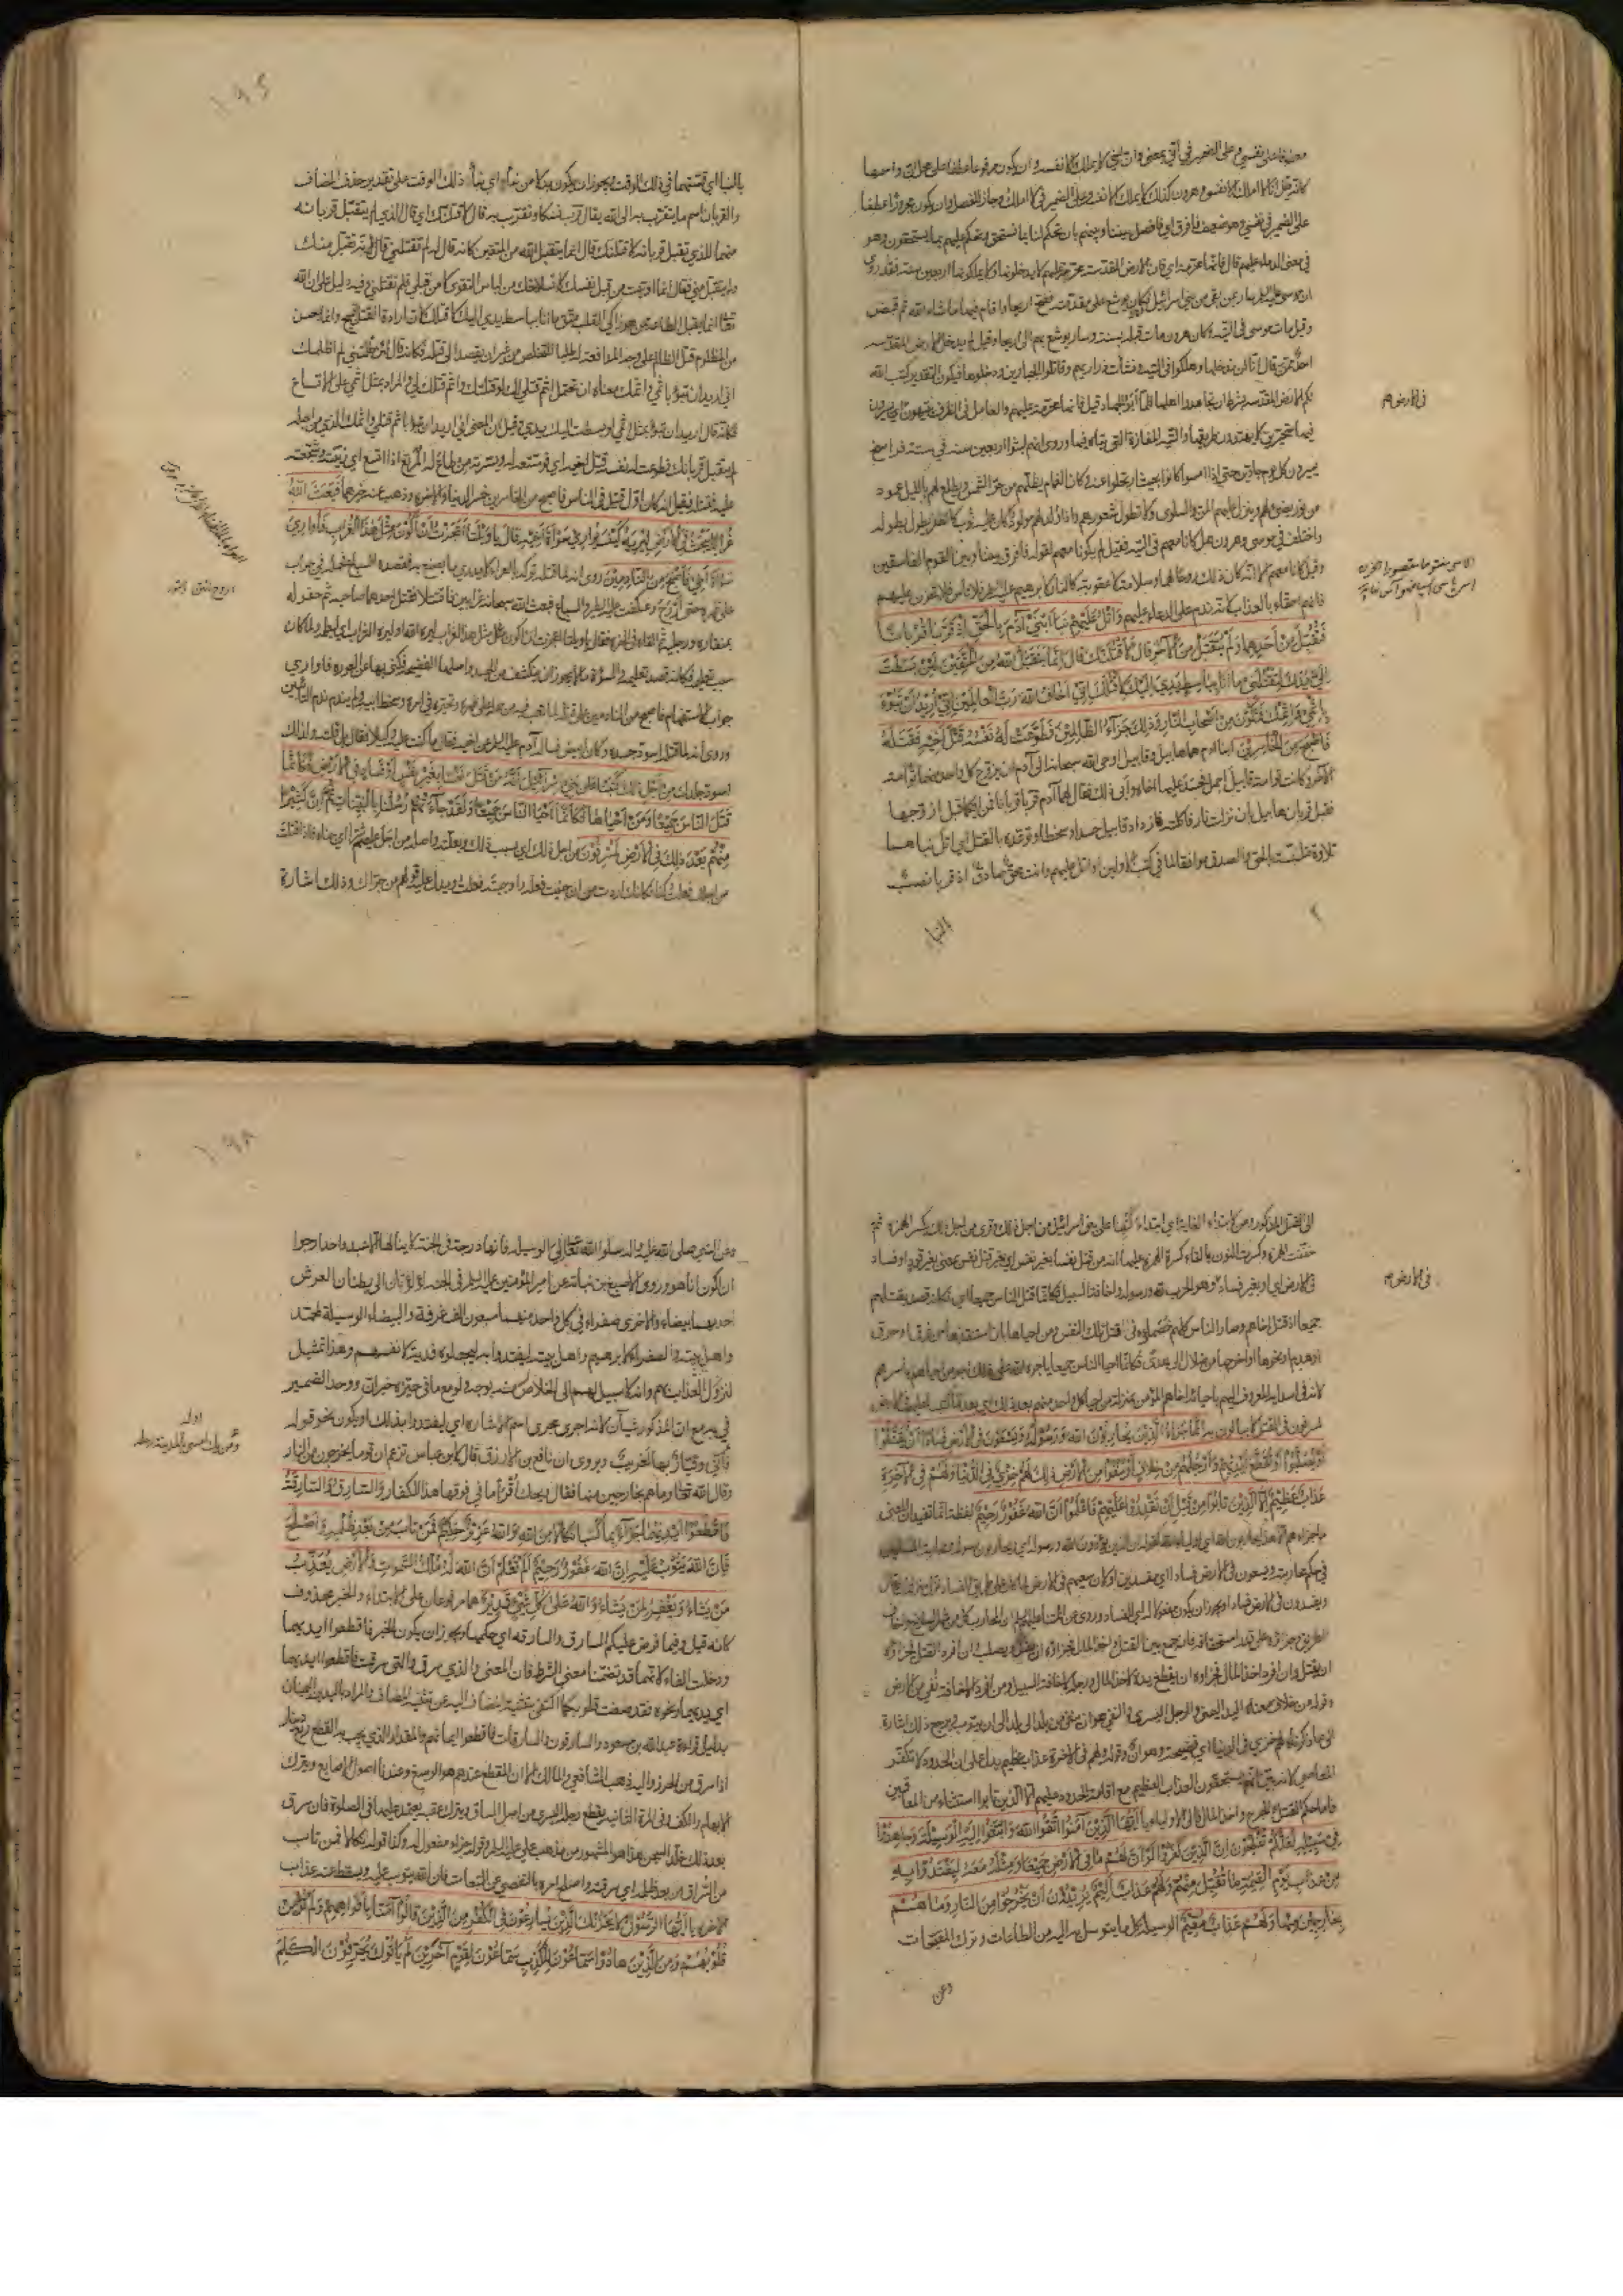 معطوفا على نفسي وعلى الضمير في اني بمعنى وان اخي لا يملك الا نفسه وان يكون مرفوعا عطفا على محل ان واسمها
كانه قيل انا لا املك الا نفسي وهرون كذلك لا يملك الا نفسه وعلى الضمير في لا املك وجاز للفصل وان يكون مجرورا عطفا
على الضمير في نفسي وهو ضعيف فافرق اي فافصل بيننا وبينهم بان تحكم لنا بما نستحق وتحكم عليهم بما يستحقون وهو
في معنى الدعاء عليهم قال فانها محرمة اي فان الارض المقدسة محرمة عليهم لا يدخلونها ولا يملكونها اربعين سنة فقد روي
ان موسى عليه السلم سار بمن بقي من بني اسرائيل وكان يوشع على مقدمته ففتح اريحا واقام فيها ما شاء الله ثم قبض
وقيل مات موسى في التيه وكان هرون مات قبله بسنة وسار يوشع بهم الى اريحا وقيل لم يدخل الارض المقدسة
احد ممن قال انا لن ندخلها وهلكوا في التيه ونشأت ذراريهم وقاتلوا الجبارين ودخلوها فيكون التقدير كتب الله
لكم الارض المقدسة بشرط ان تجاهدوا اهلها فلما ابوا الجهاد قيل فانها محرمة عليهم والعامل في الظرف يتيهون اي يسيرون
فيها متحيرين لا يهتدون طريقا والتيه المفازة التي يتاه فيها وروي انهم لبثوا اربعين سنة في ستة فراسخ
يسيرون كل يوم جادين حتى اذا امسوا كانوا بحيث ارتحلوا عنه وكان الغمام يظلهم من حر الشمس ويطلع لهم بالليل عمود
من نور يضيء لهم وينزل عليهم المن والسلوى ولا تطول شعورهم واذا ولد لهم مولود كان عليه ثوب كالظفر يطول بطوله
واختلف في موسى وهرون هل كانا معهم في التيه فقيل لم يكونا معهم لقوله فافرق بيننا وبين القوم الفاسقين
وقيل كانا معهم الا انه كان ذلك روحا لهما وسلامة لا عقوبة كالنار لابرهيم عليه السلم فلا تأس فلا تحزن عليهم
فانهم احقاء بالعذاب لانه ندم على الدعاء عليهم وَاتْلُ عَلَيْهِمْ نَبَأَ ابْنَيْ آدَمَ بِالْحَقِّ إِذْ قَرَّبَا قُرْبَانًا
فَتُقُبِّلَ مِنْ أَحَدِهِمَا وَلَمْ يُتَقَبَّلْ مِنَ الْآخَرِ قَالَ لَأَقْتُلَنَّكَ قَالَ إِنَّمَا يَتَقَبَّلُ اللهُ مِنَ الْمُتَّقِينَ لَئِنْ بَسَطْتَ
إِلَيَّ يَدَكَ لِتَقْتُلَنِي مَا أَنَا بِبَاسِطٍ يَدِيَ إِلَيْكَ لِأَقْتُلَكَ إِنِّي أَخَافُ اللهَ رَبَّ الْعَالَمِينَ إِنِّي أُرِيدُ أَنْ تَبُوءَ
بِإِثْمِي وَإِثْمِكَ فَتَكُونَ مِنْ أَصْحَابِ النَّارِ وَذَلِكَ جَزَاءُ الظَّالِمِينَ فَطَوَّعَتْ لَهُ نَفْسُهُ قَتْلَ أَخِيهِ فَقَتَلَهُ
فَأَصْبَحَ مِنَ الْخَاسِرِينَ ابنا ادم هما هابيل وقابيل اوحى الله سبحانه الى آدم ان يزوج كل واحد منهما توأمة
الآخر وكانت توأمة قابيل اجمل فحسد عليها اخاه وابى ذلك فقال لهما آدم قربا قربانا فمن ايكما قبل تزوجها
فقبل قربان هابيل بان نزلت نار فاكلته فازداد قابيل حسدا وسخطا وتوعده بالقتل اي اتل نباهما
تلاوة متلبسة بالحق والصدق موافقا لما في كتب الاولين او اتل عليهم وانت محق صادق اذ قربا نصب
النبا
في الارض م
١٩٥
بالنبا اي قصتهما في ذلك الوقت ويجوز ان يكون بدلا من نبأ اي نبأ ذلك الوقت على تقدير حذف المضاف
والقربان اسم ما يتقرب به الى الله يقال قرب نسكا وتقرب به قال لاقتلنك اي قال الذي لم يتقبل قربانه
منهما للذي تقبل قربانه لاقتلنك قال انما يتقبل الله من المتقين كانه قال له لم تقتلني قال لانه تقبل منك
ولم يتقبل مني فقال انما اوتيت من قبل نفسك لانسلاخك من لباس التقوى لا من قبلي فلم تقتلني وفيه دليل على ان الله
تعالى انما يقبل الطاعة ممن هو زاكي القلب متق ما انا بباسط يدي اليك لاقتلك لان ارادة القتل قبيح وانما يحسن
من المظلوم قتل الظالم على وجه المدافعة له طلبا للتخلص من غير ان يقصد الى قتله فكانه قال لئن ظلمتني لم اظلمك
اني اريد ان تبوء باثمي واثمك معناه ان تحتمل اثم قتلي لك لو قتلتك واثم قتلك لي والمراد بمثل اثمي على الاتساع
فكانه قال اريد ان تبوء بمثل اثمي لو بسطت اليك يدي وقيل ان المعنى اني اريد ان تبوء باثم قتلي واثمك الذي من اجله
لم يتقبل قربانك فطوعت له نفسه قتل اخيه اي فوسعته له ويسرته من طاع له المرتع اذا اتسع اي زينت وشجعته
عليه فقتله فقيل انه كان اول قتيل في الناس فاصبح من الخاسرين خسر الدنيا والاخرة وذهب عنه خيرهما فَبَعَثَ اللهُ
غُرَابًا يَبْحَثُ فِي الْأَرْضِ لِيُرِيَهُ كَيْفَ يُوَارِي سَوْأَةَ أَخِيهِ قَالَ يَا وَيْلَتَا أَعَجَزْتُ أَنْ أَكُونَ مِثْلَ هَذَا الْغُرَابِ فَأُوَارِيَ
سَوْأَةَ أَخِي فَأَصْبَحَ مِنَ النَّادِمِينَ روي انه لما قتله تركه بالعراء لا يدري ما يصنع به فقصده السباع فحمله في جراب
على ظهره حتى اروح وعكفت عليه الطير والسباع فبعث الله سبحانه غرابين فاقتتلا فقتل احدهما صاحبه ثم حفر له
بمنقاره ورجليه ثم القاه في الحفرة فقال يا ويلتا اعجزت ان اكون مثل هذا الغراب ليريه الله او ليريه الغراب اي ليعلمه ولما كان
سبب تعليمه فكانه قصد تعليمه والسوءة ما لا يجوز ان ينكشف من الجسد واصلها الفضيحة فكني بها عن العورة فاواري
جواب الاستفهام فاصبح من النادمين على قتله لما تعب فيه من حمله على ظهره وتحيره في امره وسخط ابيه ولم يندم ندم التائبين
وروي انه لما قتله اسود جسده وكان ابيض فساله آدم عليه السلم عن اخيه فقال ما كنت عليه وكيلا فقال بل قتلته ولذلك
اسود جلدك مِنْ أَجْلِ ذَلِكَ كَتَبْنَا عَلَى بَنِي إِسْرَائِيلَ أَنَّهُ مَنْ قَتَلَ نَفْسًا بِغَيْرِ نَفْسٍ أَوْ فَسَادٍ فِي الْأَرْضِ فَكَأَنَّمَا
قَتَلَ النَّاسَ جَمِيعًا وَمَنْ أَحْيَاهَا فَكَأَنَّمَا أَحْيَا النَّاسَ جَمِيعًا وَلَقَدْ جَاءَتْهُمْ رُسُلُنَا بِالْبَيِّنَاتِ ثُمَّ إِنَّ كَثِيرًا
مِنْهُمْ بَعْدَ ذَلِكَ فِي الْأَرْضِ لَمُسْرِفُونَ من اجل ذلك اي بسبب ذلك وبعلته واصله من اجل عليهم شرا اي جناه فاذا قلت
من اجلك فعلت كذا فكانك اردت من ان جنيت فعله واوجبته فعلت ويدل عليه قولهم من جراك وذلك اشارة
الى القتل المذكور ومن لابتداء الغاية اي ابتداء كتبنا على بني اسرائيل من اجل ذلك وقرئ من اجل ذلك بكسر الهمزة ثم
خففت الهمزة وكسرت النون بالقاء كسرة الهمزة عليها انه من قتل نفسا بغير نفس اي بغير قتل نفس يعني بغير قود او فساد
في الارض اي او بغير فساد وهو الحرب لله ورسوله واخافة السبيل فكانما قتل الناس جميعا اي فكانه قصد بقتلهم
جميعا اذ قتل اخاهم وصار الناس كلهم خصماءه في قتل تلك النفس ومن احياها بان استنقذها من غرق او حرق
او هدم او نحوها او اخرجها من ضلال الى هدى فكانما احيا الناس جميعا ياجره الله على ذلك اجر من احياهم باسرهم
لانه في اسدائه المعروف اليهم باحيائه اخاهم المؤمن بمنزلة من احيا كل واحد منهم بعد ذلك اي بعد ما كتبنا عليهم في الارض
لمسرفون في القتل لا يبالون به إِنَّمَا جَزَاءُ الَّذِينَ يُحَارِبُونَ اللهَ وَرَسُولَهُ وَيَسْعَوْنَ فِي الْأَرْضِ فَسَادًا أَنْ يُقَتَّلُوا
أَوْ يُصَلَّبُوا أَوْ تُقَطَّعَ أَيْدِيهِمْ وَأَرْجُلُهُمْ مِنْ خِلَافٍ أَوْ يُنْفَوْا مِنَ الْأَرْضِ ذَلِكَ لَهُمْ خِزْيٌ فِي الدُّنْيَا وَلَهُمْ فِي الْآخِرَةِ
عَذَابٌ عَظِيمٌ إِلَّا الَّذِينَ تَابُوا مِنْ قَبْلِ أَنْ تَقْدِرُوا عَلَيْهِمْ فَاعْلَمُوا أَنَّ اللهَ غَفُورٌ رَحِيمٌ لفظة انما تفيد ان المعنى
ما جزاؤهم الا هذا يحاربون الله اي اولياء الله كقوله ان الذين يؤذون الله ورسوله اي يحاربون رسوله ومحاربة المسلمين
في حكم محاربته ويسعون في الارض فسادا اي مفسدين
ويفسدون في الارض فسادا ويجوز ان يكون مفعولا له اي للفساد
ان يقتل وان افرد اخذ المال فجزاؤه ان يقطع يده لاخذ المال ورجله لاخافة السبيل ومن افرد الاخافة نفي من الارض
وقوله من خلاف معناه اليد اليمنى والرجل اليسرى والنفي هو ان ينفى من بلد الى بلد الى ان يتوب ويرجع ذلك اشارة
الى ما ذكرناه لهم خزي في الدنيا اي فضيحة وهوان وقوله ولهم في الاخرة عذاب عظيم يدل على ان الحدود لا تكفر
المعاصي لانه بين انهم يستحقون العذاب العظيم مع اقامة الحدود عليهم الا الذين تابوا استثناء من المعاقبين
فاما حكم القتل والجرح واخذ المال فالى الاولياء يَا أَيُّهَا الَّذِينَ آمَنُوا اتَّقُوا اللهَ وَابْتَغُوا إِلَيْهِ الْوَسِيلَةَ وَجَاهِدُوا
فِي سَبِيلِهِ لَعَلَّكُمْ تُفْلِحُونَ إِنَّ الَّذِينَ كَفَرُوا لَوْ أَنَّ لَهُمْ مَا فِي الْأَرْضِ جَمِيعًا وَمِثْلَهُ مَعَهُ لِيَفْتَدُوا بِهِ
مِنْ عَذَابِ يَوْمِ الْقِيمَةِ مَا تُقُبِّلَ مِنْهُمْ وَلَهُمْ عَذَابٌ أَلِيمٌ يُرِيدُونَ أَنْ يَخْرُجُوا مِنَ النَّارِ وَمَا هُمْ
بِخَارِجِينَ مِنْهَا وَلَهُمْ عَذَابٌ مُقِيمٌ الوسيلة كل ما يتوسل به اليه من الطاعات وترك المقبحات
وعن
في الارض م
١٩٨
وعن النبي صلى الله عليه واله سلوا الله تعالى لي الوسيلة فانها درجة في الجنة لا ينالها الا عبد واحد ارجوا
ان اكون انا هو وروى الاصبغ بن نباتة عن امير المؤمنين عليه السلم في الجنة لؤلؤتان الى بطنان العرش
احديهما بيضاء والاخرى صفراء في كل واحدة منهما سبعون الف غرفة والبيضاء الوسيلة لمحمد
واهل بيته والصفراء لابرهيم واهل بيته ليفتدوا به ليجعلوه فدية لانفسهم وهذا تمثيل
للزوم العذاب لهم وانه لا سبيل لهم الى الخلاص منه بوجه ولو مع ما في حيزه خبر ان ووحد الضمير
في به مع ان المذكور شيآن لانه اجري مجرى اسم الاشارة اي ليفتدوا بذلك او يكون نحو قوله
فاني وقيار بها لغريب ويروى ان نافع بن الازرق قال لابن عباس تزعم ان قوما يخرجون من النار
وقال الله تعالى وما هم بخارجين منها فقال ويحك اقرأ ما في فوقها هذا للكفار وَالسَّارِقُ وَالسَّارِقَةُ
فَاقْطَعُوا أَيْدِيَهُمَا جَزَاءً بِمَا كَسَبَا نَكَالًا مِنَ اللهِ وَاللهُ عَزِيزٌ حَكِيمٌ فَمَنْ تَابَ مِنْ بَعْدِ ظُلْمِهِ وَأَصْلَحَ
فَإِنَّ اللهَ يَتُوبُ عَلَيْهِ إِنَّ اللهَ غَفُورٌ رَحِيمٌ أَلَمْ تَعْلَمْ أَنَّ اللهَ لَهُ مُلْكُ السَّمَوَاتِ وَالْأَرْضِ يُعَذِّبُ
مَنْ يَشَاءُ وَيَغْفِرُ لِمَنْ يَشَاءُ وَاللهُ عَلَى كُلِّ شَيْءٍ قَدِيرٌ هما مرفوعان على الابتداء والخبر محذوف
كانه قيل وفيما فرض عليكم السارق والسارقة اي حكمهما ويجوز ان يكون الخبر فاقطعوا ايديهما
ودخلت الفاء لانهما قد تضمنا معنى الشرط فان المعنى والذي سرق والتي سرقت فاقطعوا ايديهما
اي يديهما ونحوه فقد صغت قلوبكما اكتفى بتثنية المضاف اليه عن تثنية المضاف والمراد باليدين اليمينان
بدليل قراءة عبد الله بن مسعود والسارقون والسارقات فاقطعوا ايمانهم والمقدار الذي يجب به القطع ربع دينار
اذا سرق من الحرز واليه ذهب الشافعي والمالك الا ان المقطع عندهم هو الرسغ وعندنا اصول الاصابع ويترك
الابهام والكف وفي المرة الثانية يقطع رجله اليسرى من اصل الساق ويترك عقبه يعتمد عليها في الصلوة فان سرق
بعد ذلك خلد السجن هذا هو المشهور من مذهب علي عليه السلم وقوله جزاء مفعول له وكذا قوله نكالا فمن تاب
من السراق من بعد ظلمه اي سرقته واصلح امره بالتفصي عن التبعات فان الله يتوب عليه ويسقط عنه عذاب
الاخرة يَا أَيُّهَا الرَّسُولُ لَا يَحْزُنْكَ الَّذِينَ يُسَارِعُونَ فِي الْكُفْرِ مِنَ الَّذِينَ قَالُوا آمَنَّا بِأَفْوَاهِهِمْ وَلَمْ تُؤْمِنْ
قُلُوبُهُمْ وَمِنَ الَّذِينَ هَادُوا سَمَّاعُونَ لِلْكَذِبِ سَمَّاعُونَ لِقَوْمٍ آخَرِينَ لَمْ يَأْتُوكَ يُحَرِّفُونَ الْكَلِمَ